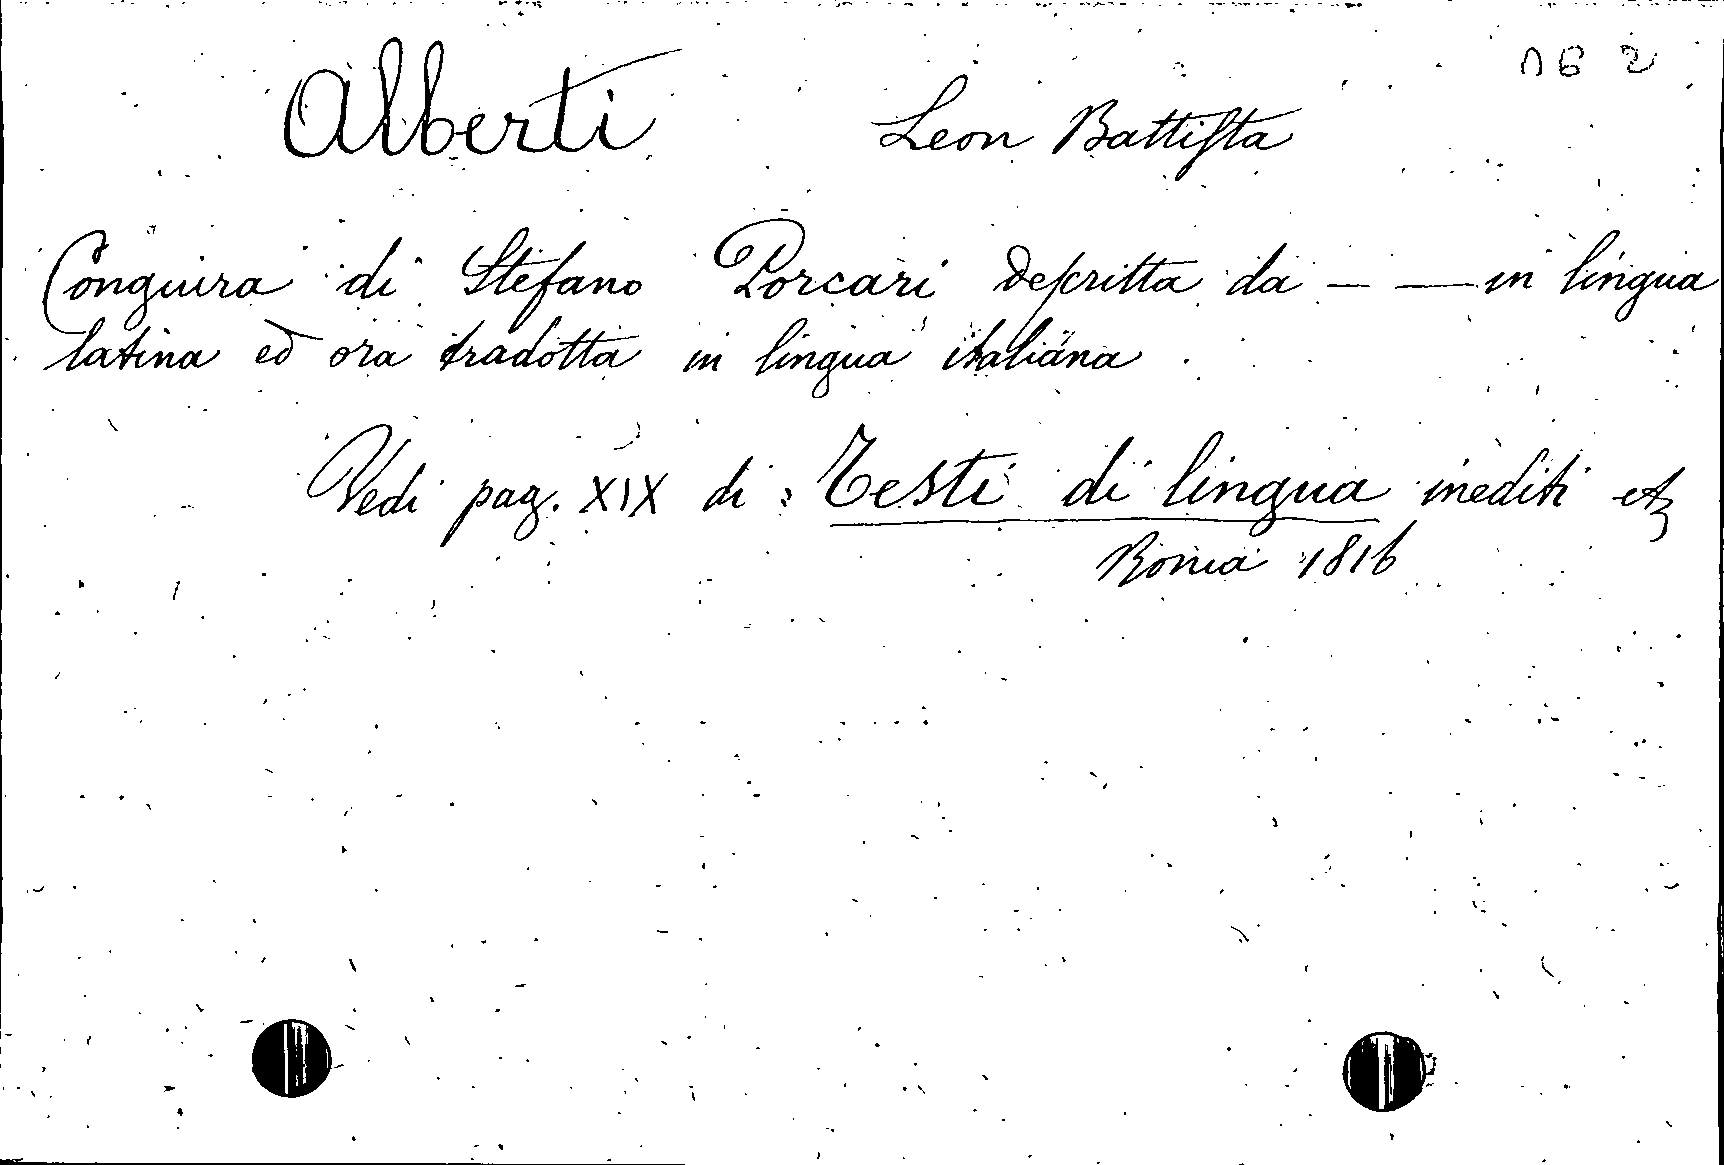 Alberti Leon Battista
Congiura di Stefano Porcari descritta da — — in lingua
latina ed ora tradotta in lingua italiana.
Vedi pag. XIX di: Testi di lingua inediti etc
Roma 1816